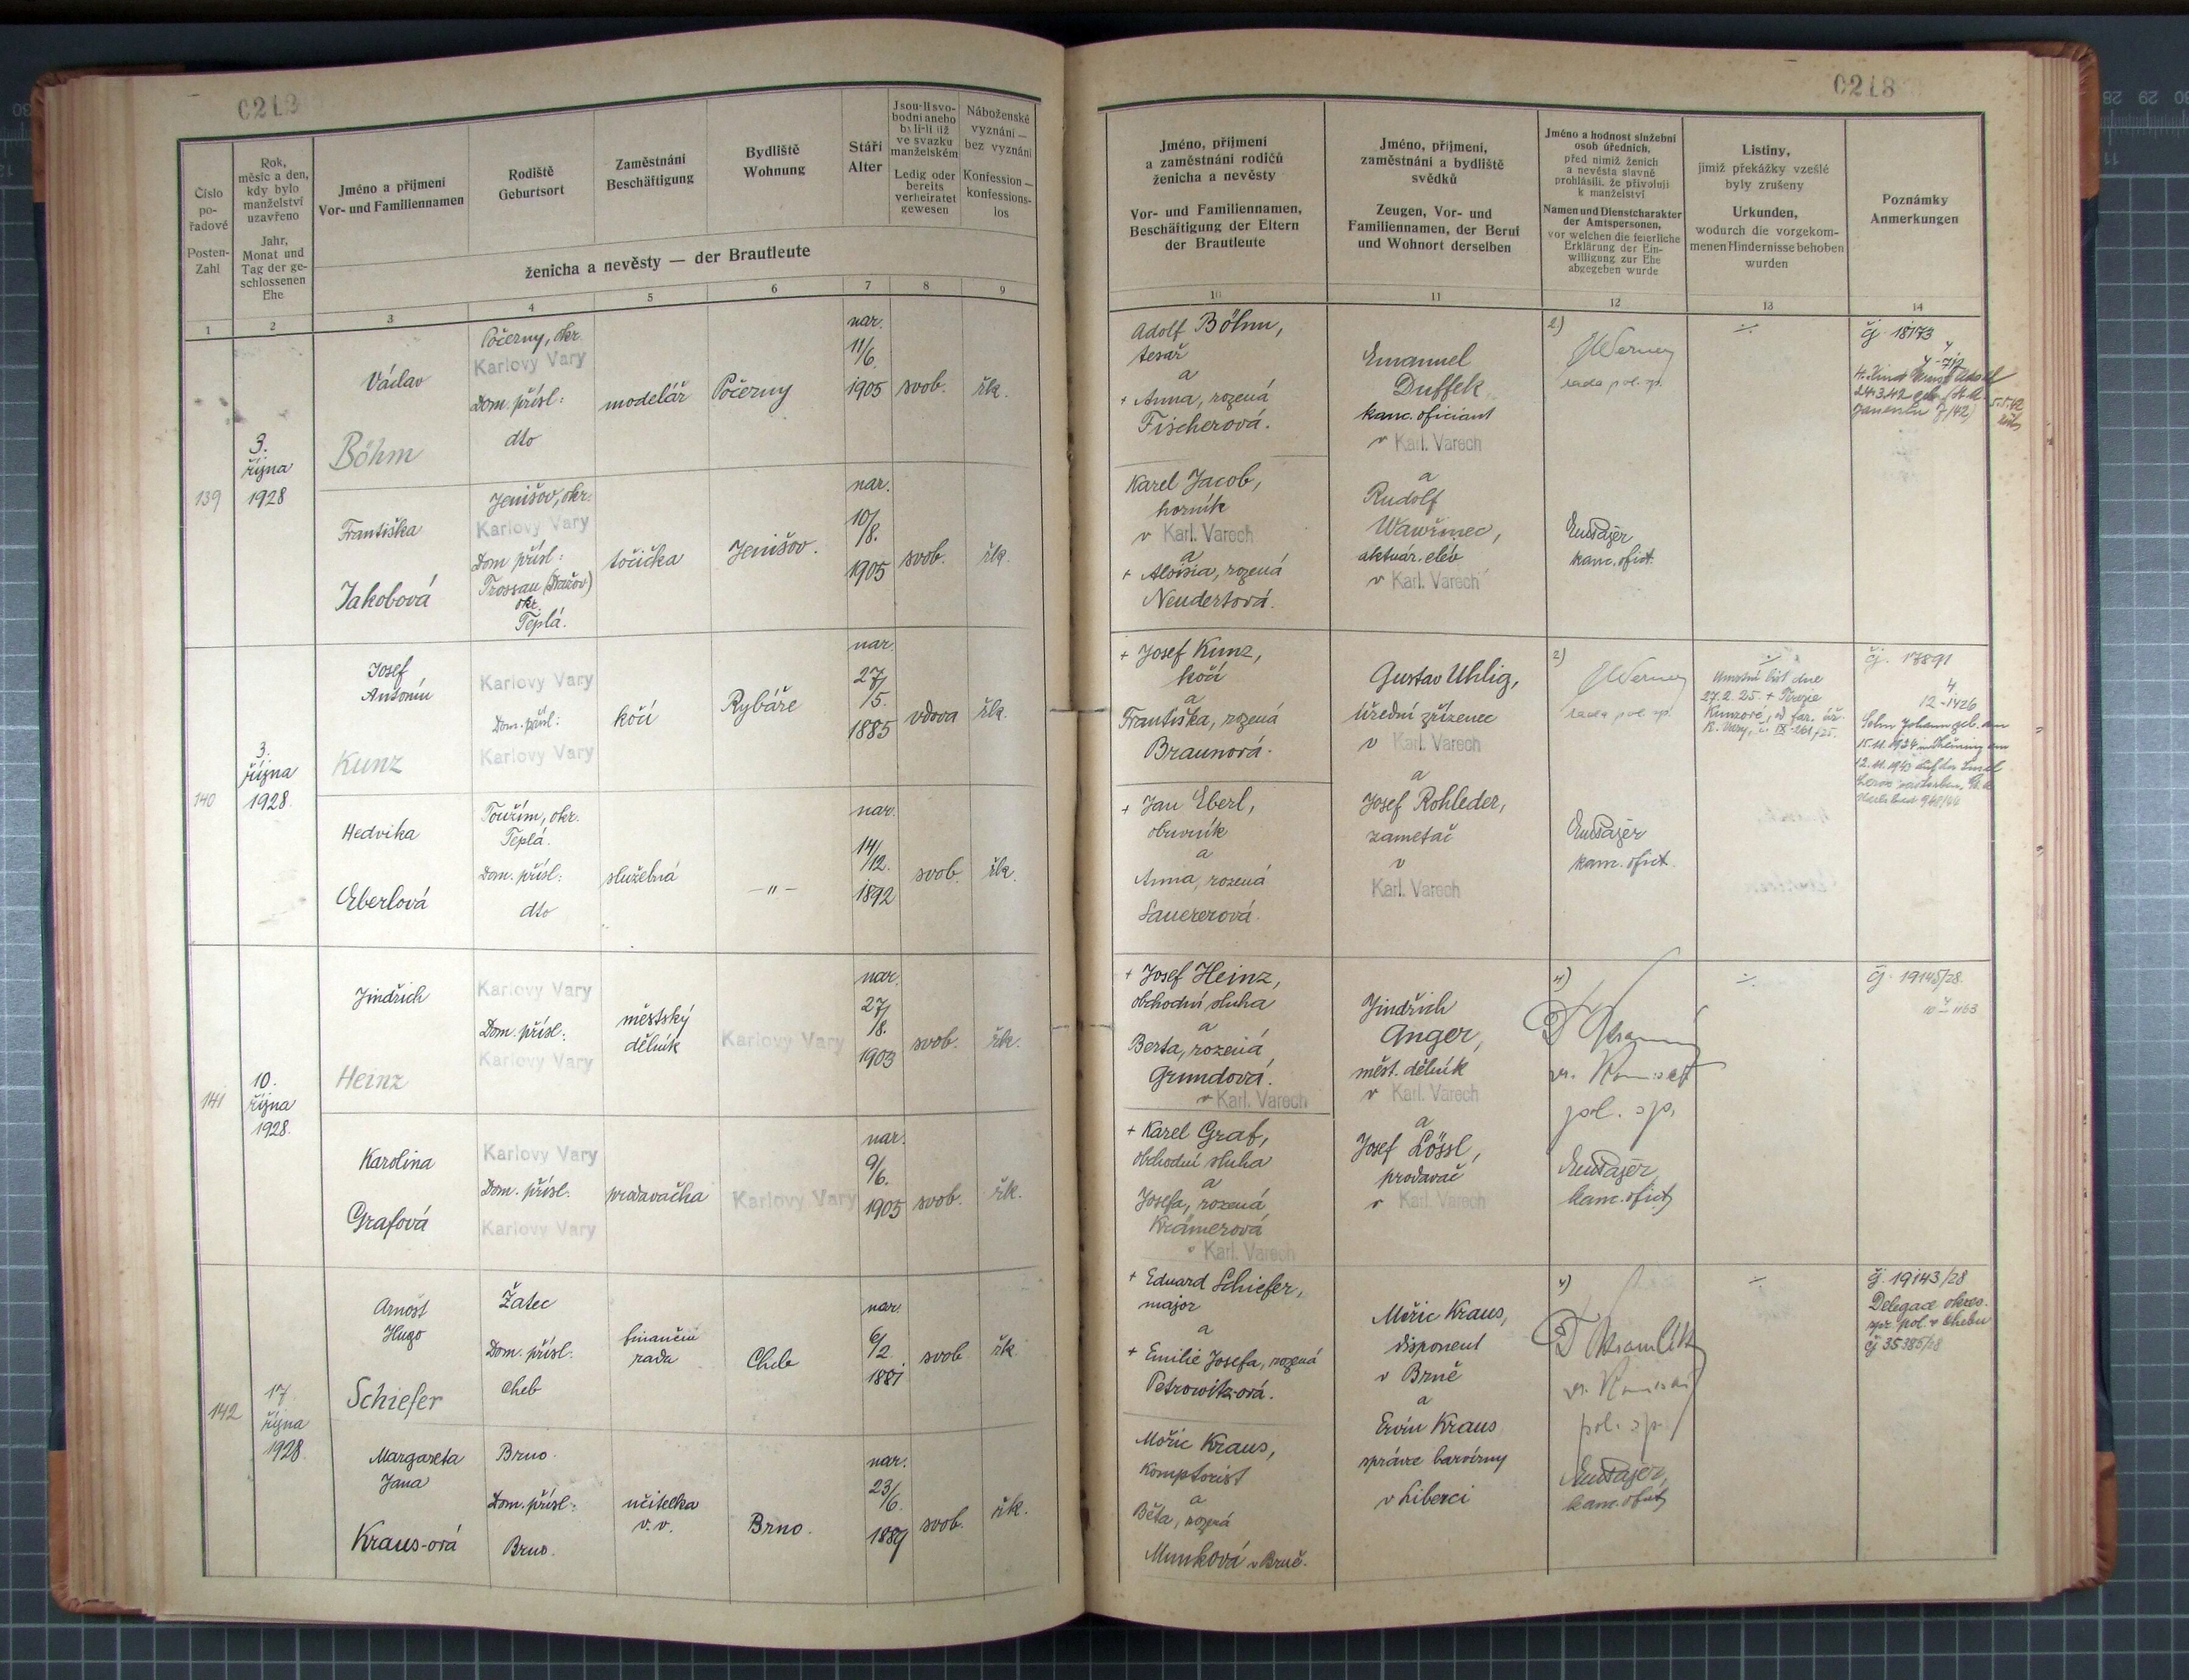 0213
Číslo
po-
řadové
Posten-
Zahl
Rok,
měsíc a den,
kdy bylo
manželství
uzavřeno
Jahr,
Monat und
Tag der ge-
schlossenen
Ehe
Jméno a příjmení
Vor- und Familiennamen
Rodiště
Geburtsort
Zaměstnání
Beschäftigung
Bydliště
Wohnung
Stáří
Alter
Jsou-li svo-
bodni aneho
byli-li již
ve svazku
manželském
Ledig oder
bereits
verheiratet
gewesen
Náboženské
vyznání —
bez vyznání
Konfession —
konfessions-
los
ženicha a nevěsty — der Brautleute
1 2 3 4 5 6 7 8 9
139
3.
října
1928
Václav
Böhm
Počerny, okr.
Karlovy Vary
Dom. přísl:
dto
modelář
Počerny
nar.
11/6.
1905
svob.
řk.
Františka
Jakobová
Jenišov, okr.
Karlovy Vary
Dom přísl:
Trossau (Dražov)
okr.
Teplá.
točička
Jenišov.
nar.
10/8.
1905
svob.
řk.
140
3.
října
1928
Josef
Antonín
Kunz
Karlovy Vary
Dom. přísl:
Karlovy Vary
kočí
Rybáře
nar.
27/5.
1885
vdova
řk.
Hedvika
Eberlová
Toužim, okr.
Teplá.
Dom. přísl:
dto
služebná
—"—
nar.
14/12.
1892
svob.
řk.
141
10.
října
1928.
Jindřich
Heinz
Karlovy Vary
Dom. přísl:
Karlovy Vary
městský
dělník
Karlovy Vary
nar.
27/8.
1903
svob.
řk.
Karolina
Grafová
Karlovy Vary
Dom. přísl.
Karlovy Vary
prodavačka
Karlovy Vary
nar.
9/6.
1905
svob.
řk.
142
17
října
1928.
Arnošt
Hugo
Schiefer
Žatec
Dom. přísl.
Cheb
finanční
rada
Cheb
nar.
6/2
1881
svob
řk
Margareta
Jana
Kraus-ová
Brno.
Dom. přísl:
Brno.
učitelka
v. v.
Brno.
nar.
23/6.
1889
svob.
řk.
0213
Jméno, příjmení
a zaměstnání rodičů
ženicha a nevěsty
Vor- und Familiennamen,
Beschäftigung der Eltern
der Brautleute
Jméno, příjmení,
zaměstnání a bydliště
svědků
Zeugen, Vor- und
Familiennamen, der Beruf
und Wohnort derselben
Jméno a hodnost služební
osob úředních,
před nimiž ženich
a nevěsta slavně
prohlásili, že přivolují
k manželství
Namen und Dienstcharakter
der Amtspersonen,
vor welchen die feierliche
Erklärung der Ein-
willigung zur Ehe
abgegeben wurde
Listiny,
jimiž překážky vzešlé
byly zrušeny
Urkunden,
wodurch die vorgekom-
menen Hindernisse behoben
wurden
Poznámky
Anmerkungen
10 11 12 13 14
Adolf Böhm,
tesař
a
+ Anna, rozená
Fischerová.
Karel Jacob,
horník
v Karl. Varech
a
+ Aloisia, rozená
Neudertová.
Emanuel
Duffek,
kanc. oficiant
v Karl. Varech
a
Rudolf
Wawřinec,
aktuár. elév
v Karl. Varech
2)
rada pol. sp.
kanc. ofict.
÷
čj 18173
+ Josef Kunz,
kočí
a
Františka, rozená
Braunová.
+ Jan Eberl,
obuvník
a
Anna, rozená
Sauererová.
Gustav Uhlig,
úřední zřízenec
v Karl. Varech
a
Josef Rohleder,
zametač
v
Karl. Varech
2)
rada pol. sp.
kanc. ofict.
÷
Úmrtní list dne
27.2.25. + Terezie
Kunzové, od far. úř.
K. Vary, č. IX-261/25.
čj. 17891
4
12-1426
Sohn Johann geb. am
+ Josef Heinz,
obchodní sluha
a
Berta, rozená
Grundová.
v Karl. Varech
+ Karel Graf,
obchodní sluha
a
Josefa, rozená
Krämerová
v Karl. Varech
Jindřich
Anger,
měst. dělník
v Karl. Varech
a
Josef Lössl,
prodavač
v Karl. Varech
4)
pol. sp.
kanc. ofict
÷
čj. 19145/28.
+ Eduard Schiefer,
major
a
+ Emilie Josefa, rozená
Petrowitz-ová.
Mořic Kraus,
Komptorist
a
Běta, rozená
Munková v Brně.
Mořic Kraus,
disponent
v Brně
a
Ervín Kraus
správce barvírny
v Liberci
4)
pol. sp.
kanc. ofict
÷
čj. 19143/28
Delegace okres.
spr. pol. v Chebu
čj 35385/28